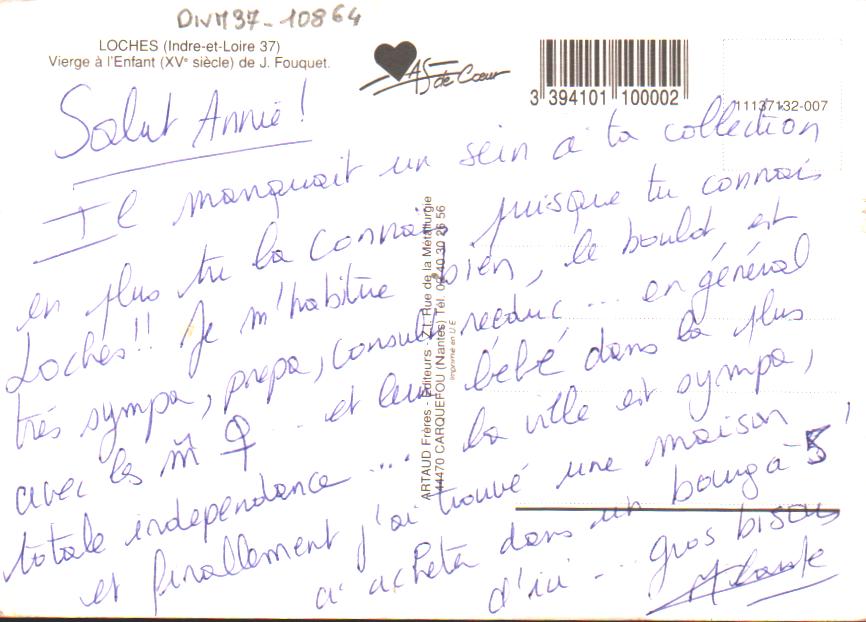 DIVM37-10864
LOCHES (Indre-et-Loire 37)
Vierge à l'Enfant (XVe siècle) de J. Fouquet.
AS de Cœur
3 394101 100002
11137132-007
Salut Annie !
Il manquait un sein à ta collection
en plus tu la connais puisque tu connais
Loches!! Je m'habitue bien, le boulot est
très sympa, prépa, consult, reeduc... en général
avec les ♀... et leur bébé dans la plus
totale independance... la ville est sympa,
et finallement j'ai trouvé une maison
à acheter dans un bourg à 5'
d'ici... gros bisous
ARTAUD Frères - Editeurs - Z.I. Rue de la Métallurgie
44470 CARQUEFOU (Nantes) Tél. 02 40 30 26 56
Imprimé en U.E